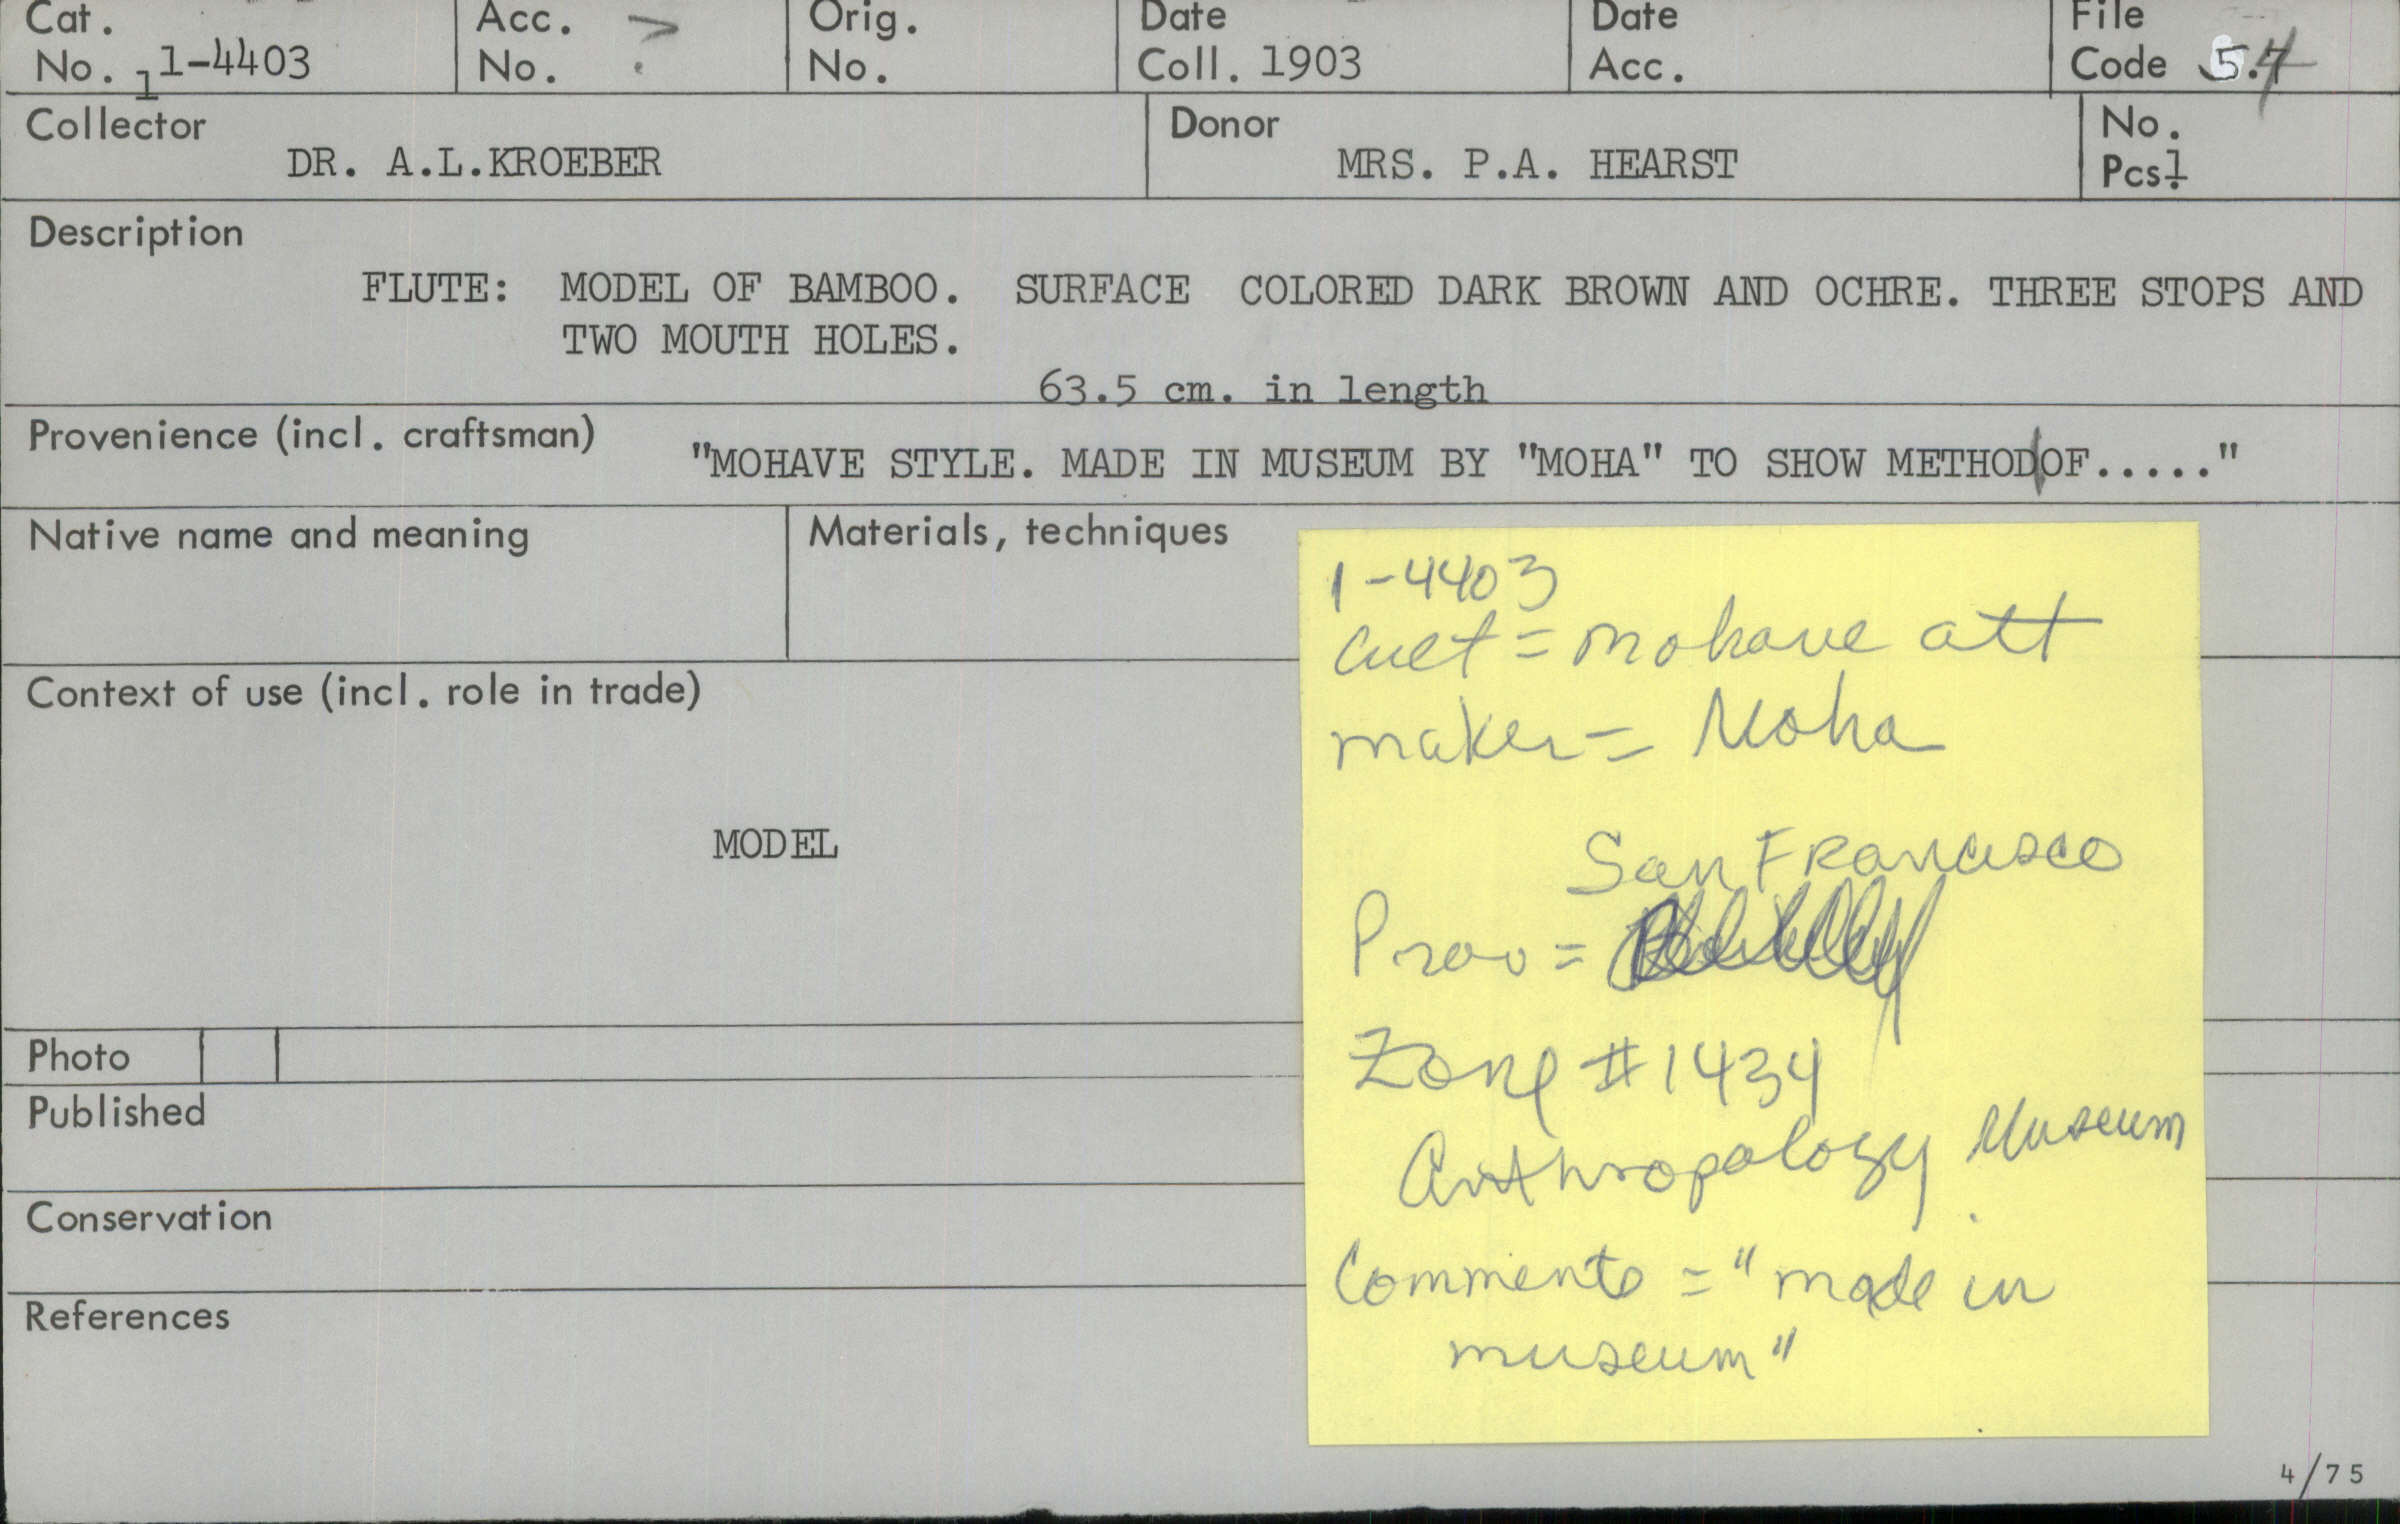 Cat. No. 1 1-4403
Acc. No. ?
Orig. No.
Date Coll. 1903
Date Acc.
File Code 5.7
Collector
DR. A.L.KROEBER
Donor
MRS. P.A. HEARST
No. Pcs. 1
Description
FLUTE: MODEL OF BAMBOO. SURFACE COLORED DARK BROWN AND OCHRE. THREE STOPS AND
TWO MOUTH HOLES.
63.5 cm. in length
Provenience (incl. craftsman)
"MOHAVE STYLE. MADE IN MUSEUM BY "MOHA" TO SHOW METHOD OF....."
Native name and meaning
Materials, techniques
Context of use (incl. role in trade)
MODEL
Photo
Published
Conservation
References
1-4403
Cult = Mohave att
maker = Moha
San Francisco
Prov =
Zone #1434
Anthropology Museum
Comments = "made in
museum"
4/75